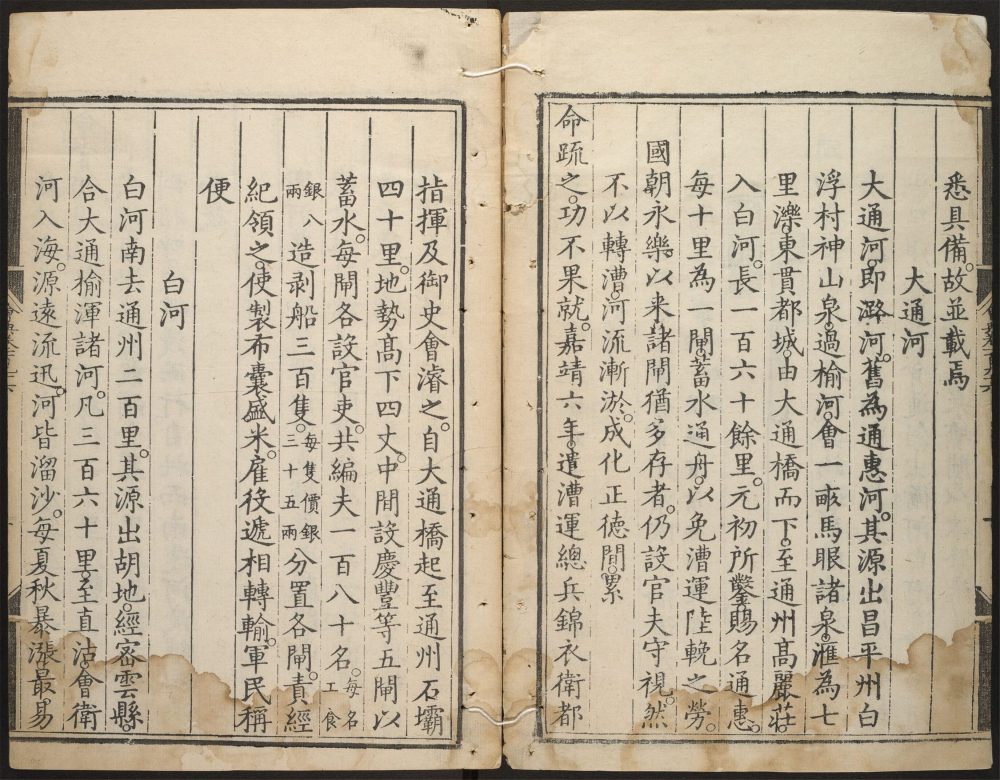 悉具備。故並載焉
大通河
大通河。即潞河。舊為通惠河。其源出昌平州白
浮村神山泉。過榆河。會一畝馬眼諸泉。滙為七
里灤。東貫都城。由大通橋而下。至通州高麗莊。
入白河。長一百六十餘里。元初所鑿。賜名通惠。
每十里為一閘。蓄水通舟。以免漕運陸輓之勞。
國朝永樂以來。諸閘猶多存者。仍設官夫守視。然
不以轉漕。河流漸淤。成化正德間。累
命疏之。功不果就。嘉靖六年。遣漕運總兵錦衣衛都
指揮及御史會濬之。自大通橋起至通州石壩
四十里。地勢高下四丈。中間設慶豐等五閘以
蓄水。每閘各設官吏。共編夫一百八十名。每名工食
銀八兩造剥船三百隻。每隻價銀三十五兩分置各閘。責經
紀領之。使製布囊盛米。雇役遞相轉輸。軍民稱
便
白河
白河南去通州二百里。其源出胡地。經密雲縣。
合大通榆渾諸河。凡三百六十里。至直沽。會衛
河入海。源遠流迅。河皆溜沙。每夏秋暴漲。最易